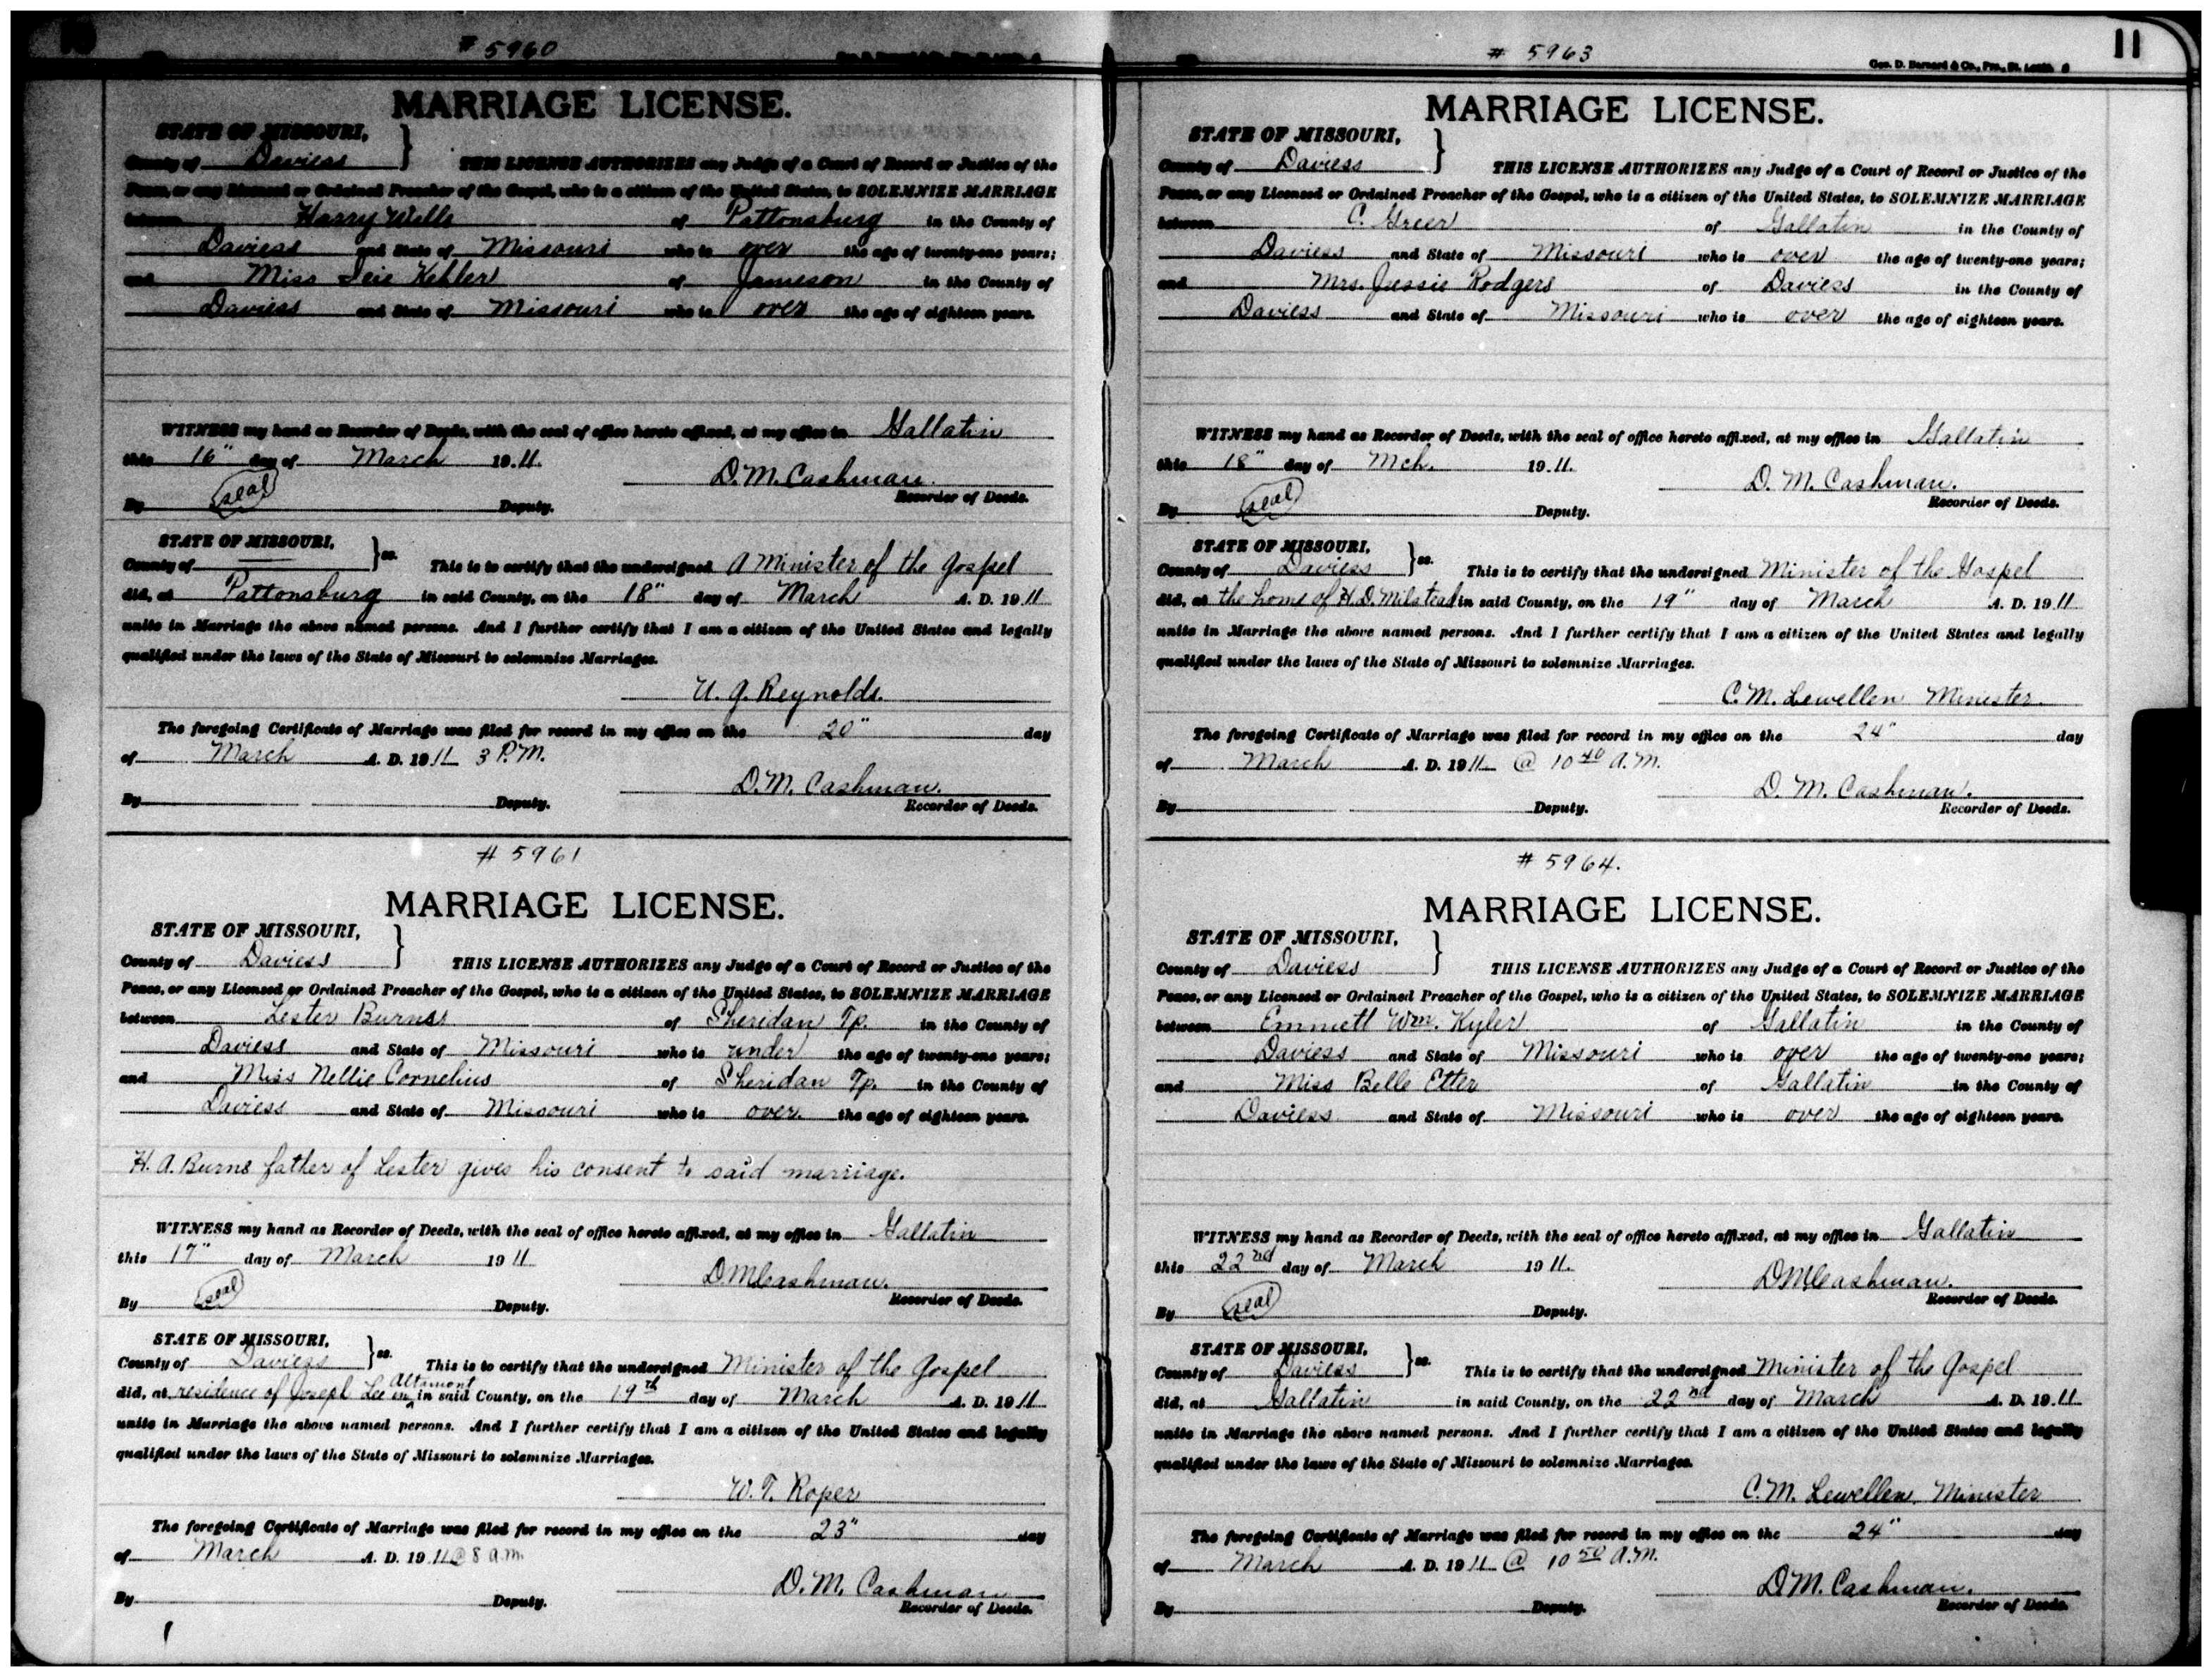 # 5960
MARRIAGE LICENSE.
STATE OF MISSOURI,
County of Daviess } THIS LICENSE AUTHORIZES any Judge of a Court of Record or Justice of the
Peace, or any Licensed or Ordained Preacher of the Gospel, who is a citizen of the United States, to SOLEMNIZE MARRIAGE
between Harry Wells of Pattonsburg in the County of
Daviess and State of Missouri who is over the age of twenty-one years;
and Miss Kehler of Jameson in the County of
Daviess and State of Missouri who is over the age of eighteen years.
WITNESS my hand as Recorder of Deeds, with the seal of office hereto affixed, at my office in Gallatin
this 16" day of March 1911.
D. M. Cashman.
By (seal) Deputy. Recorder of Deeds.
STATE OF MISSOURI,
County of — } ss. This is to certify that the undersigned A Minister of the Gospel
did, at Pattonsburg in said County, on the 18" day of March A. D. 1911
unite in Marriage the above named persons. And I further certify that I am a citizen of the United States and legally
qualified under the laws of the State of Missouri to solemnize Marriages.
U. G. Reynolds.
The foregoing Certificate of Marriage was filed for record in my office on the 20" day
of March A. D. 1911 3 P.M.
D. M. Cashman.
By Deputy. Recorder of Deeds.
# 5961
MARRIAGE LICENSE.
STATE OF MISSOURI,
County of Daviess } THIS LICENSE AUTHORIZES any Judge of a Court of Record or Justice of the
Peace, or any Licensed or Ordained Preacher of the Gospel, who is a citizen of the United States, to SOLEMNIZE MARRIAGE
between Lester Burns of Sheridan Tp. in the County of
Daviess and State of Missouri who is under the age of twenty-one years;
and Miss Nellie Cornelius of Sheridan Tp. in the County of
Daviess and State of Missouri who is over. the age of eighteen years.
H. A. Burns father of Lester gives his consent to said marriage.
WITNESS my hand as Recorder of Deeds, with the seal of office hereto affixed, at my office in Gallatin
this 17" day of March 1911
D M Cashman.
By (seal) Deputy. Recorder of Deeds.
STATE OF MISSOURI,
County of Daviess } ss. This is to certify that the undersigned Minister of the Gospel
did, at residence of Joseph Lee in Altamont in said County, on the 19th day of March A. D. 1911
unite in Marriage the above named persons. And I further certify that I am a citizen of the United States and legally
qualified under the laws of the State of Missouri to solemnize Marriages.
W. T. Roper
The foregoing Certificate of Marriage was filed for record in my office on the 23" day
of March A. D. 1911 @ 8 a.m.
D. M. Cashman
By Deputy. Recorder of Deeds.
# 5963
Geo. D. Barnard & Co., Pro., St. Louis
11
MARRIAGE LICENSE.
STATE OF MISSOURI,
County of Daviess } THIS LICENSE AUTHORIZES any Judge of a Court of Record or Justice of the
Peace, or any Licensed or Ordained Preacher of the Gospel, who is a citizen of the United States, to SOLEMNIZE MARRIAGE
between C. Greer of Gallatin in the County of
Daviess and State of Missouri who is over the age of twenty-one years;
and Mrs. Jessie Rodgers of Daviess in the County of
Daviess and State of Missouri who is over the age of eighteen years.
WITNESS my hand as Recorder of Deeds, with the seal of office hereto affixed, at my office in Gallatin
this 18" day of Mch. 1911.
D. M. Cashman.
By (seal) Deputy. Recorder of Deeds.
STATE OF MISSOURI,
County of Daviess } ss. This is to certify that the undersigned Minister of the Gospel
did, at the home of H. D. Milstead in said County, on the 19" day of March A. D. 1911
unite in Marriage the above named persons. And I further certify that I am a citizen of the United States and legally
qualified under the laws of the State of Missouri to solemnize Marriages.
C. M. Lewellen Minister.
The foregoing Certificate of Marriage was filed for record in my office on the 24" day
of March A. D. 1911 @ 10 40 A.M.
D. M. Cashman.
By Deputy. Recorder of Deeds.
# 5964.
MARRIAGE LICENSE.
STATE OF MISSOURI,
County of Daviess } THIS LICENSE AUTHORIZES any Judge of a Court of Record or Justice of the
Peace, or any Licensed or Ordained Preacher of the Gospel, who is a citizen of the United States, to SOLEMNIZE MARRIAGE
between Emmett Wm. Kyler of Gallatin in the County of
Daviess and State of Missouri who is over the age of twenty-one years;
and Miss Belle Etter of Gallatin in the County of
Daviess and State of Missouri who is over the age of eighteen years.
WITNESS my hand as Recorder of Deeds, with the seal of office hereto affixed, at my office in Gallatin
this 22nd day of March 1911.
D M Cashman.
By (seal) Deputy. Recorder of Deeds.
STATE OF MISSOURI,
County of Daviess } ss. This is to certify that the undersigned Minister of the Gospel
did, at Gallatin in said County, on the 22nd day of March A. D. 1911
unite in Marriage the above named persons. And I further certify that I am a citizen of the United States and legally
qualified under the laws of the State of Missouri to solemnize Marriages.
C. M. Lewellen, Minister
The foregoing Certificate of Marriage was filed for record in my office on the 24" day
of March A. D. 1911 @ 10 50 A.M.
D. M. Cashman.
By Deputy. Recorder of Deeds.